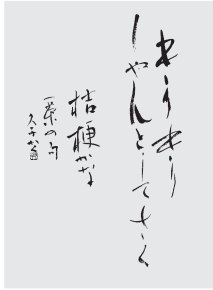 きりきり
しやんとしてさく
桔梗かな
一茶の句
久子かく